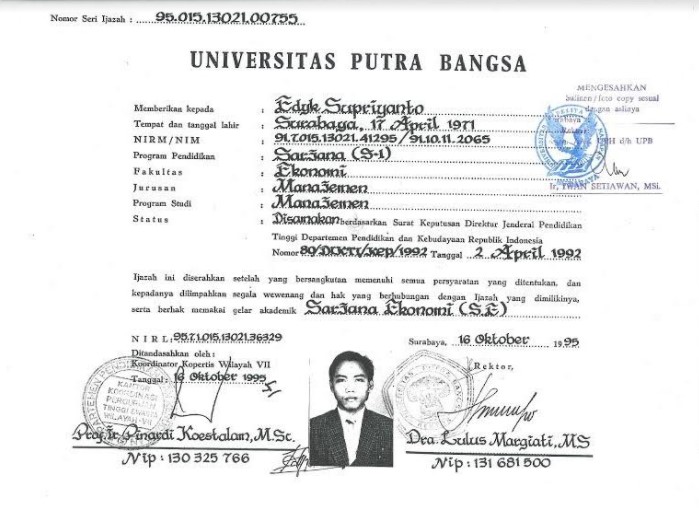 Nomor Seri Ijazah : 95.015.13021.00755
UNIVERSITAS PUTRA BANGSA
MENGESAHKAN
Salinan / foto copy sesuai
dengan aslinya
Memberikan kepada : Edyk Supriyanto
Tempat dan tanggal lahir : Surabaya, 17 April 1971
NIRM/NIM : 91.7.015.13021.41295 / 91.10.11.2065
d/h UPB
Program Pendidikan : Sarjana (S-1)
Fakultas : Ekonomi
Ir, IWAN SETIAWAN, MSi.
Jurusan : Manajemen
Program Studi : Manajemen
Status : Disamakan berdasarkan Surat Keputusan Direktur Jenderal Pendidikan
Tinggi Departemen Pendidikan dan Kebudayaan Republik Indonesia
Nomor 89/DIKTI/Kep/1992 Tanggal 2 April 1992
Ijazah ini diserahkan setelah yang bersangkutan memenuhi semua persyaratan yang ditentukan, dan
kepadanya dilimpahkan segala wewenang dan hak yang berhubungan dengan Ijazah yang dimilikinya,
serta berhak memakai gelar akademik Sarjana Ekonomi (S.E)
N I R L : 95.7.1.015.13021.36329
Surabaya, 16 Oktober 1995
Ditandasahkan oleh :
Koordinator Kopertis Wilayah VII
Rektor,
Tanggal : 16 Oktober 1995
KANTOR
KOORDINASI
PERGURUAN
TINGGI SWASTA
WILAYAH VII
Prof. Ir. Pinardi Koestalam, M.Sc.
Dra. Lulus Margiati, MS
Nip : 130 325 766
Nip : 131 681 500